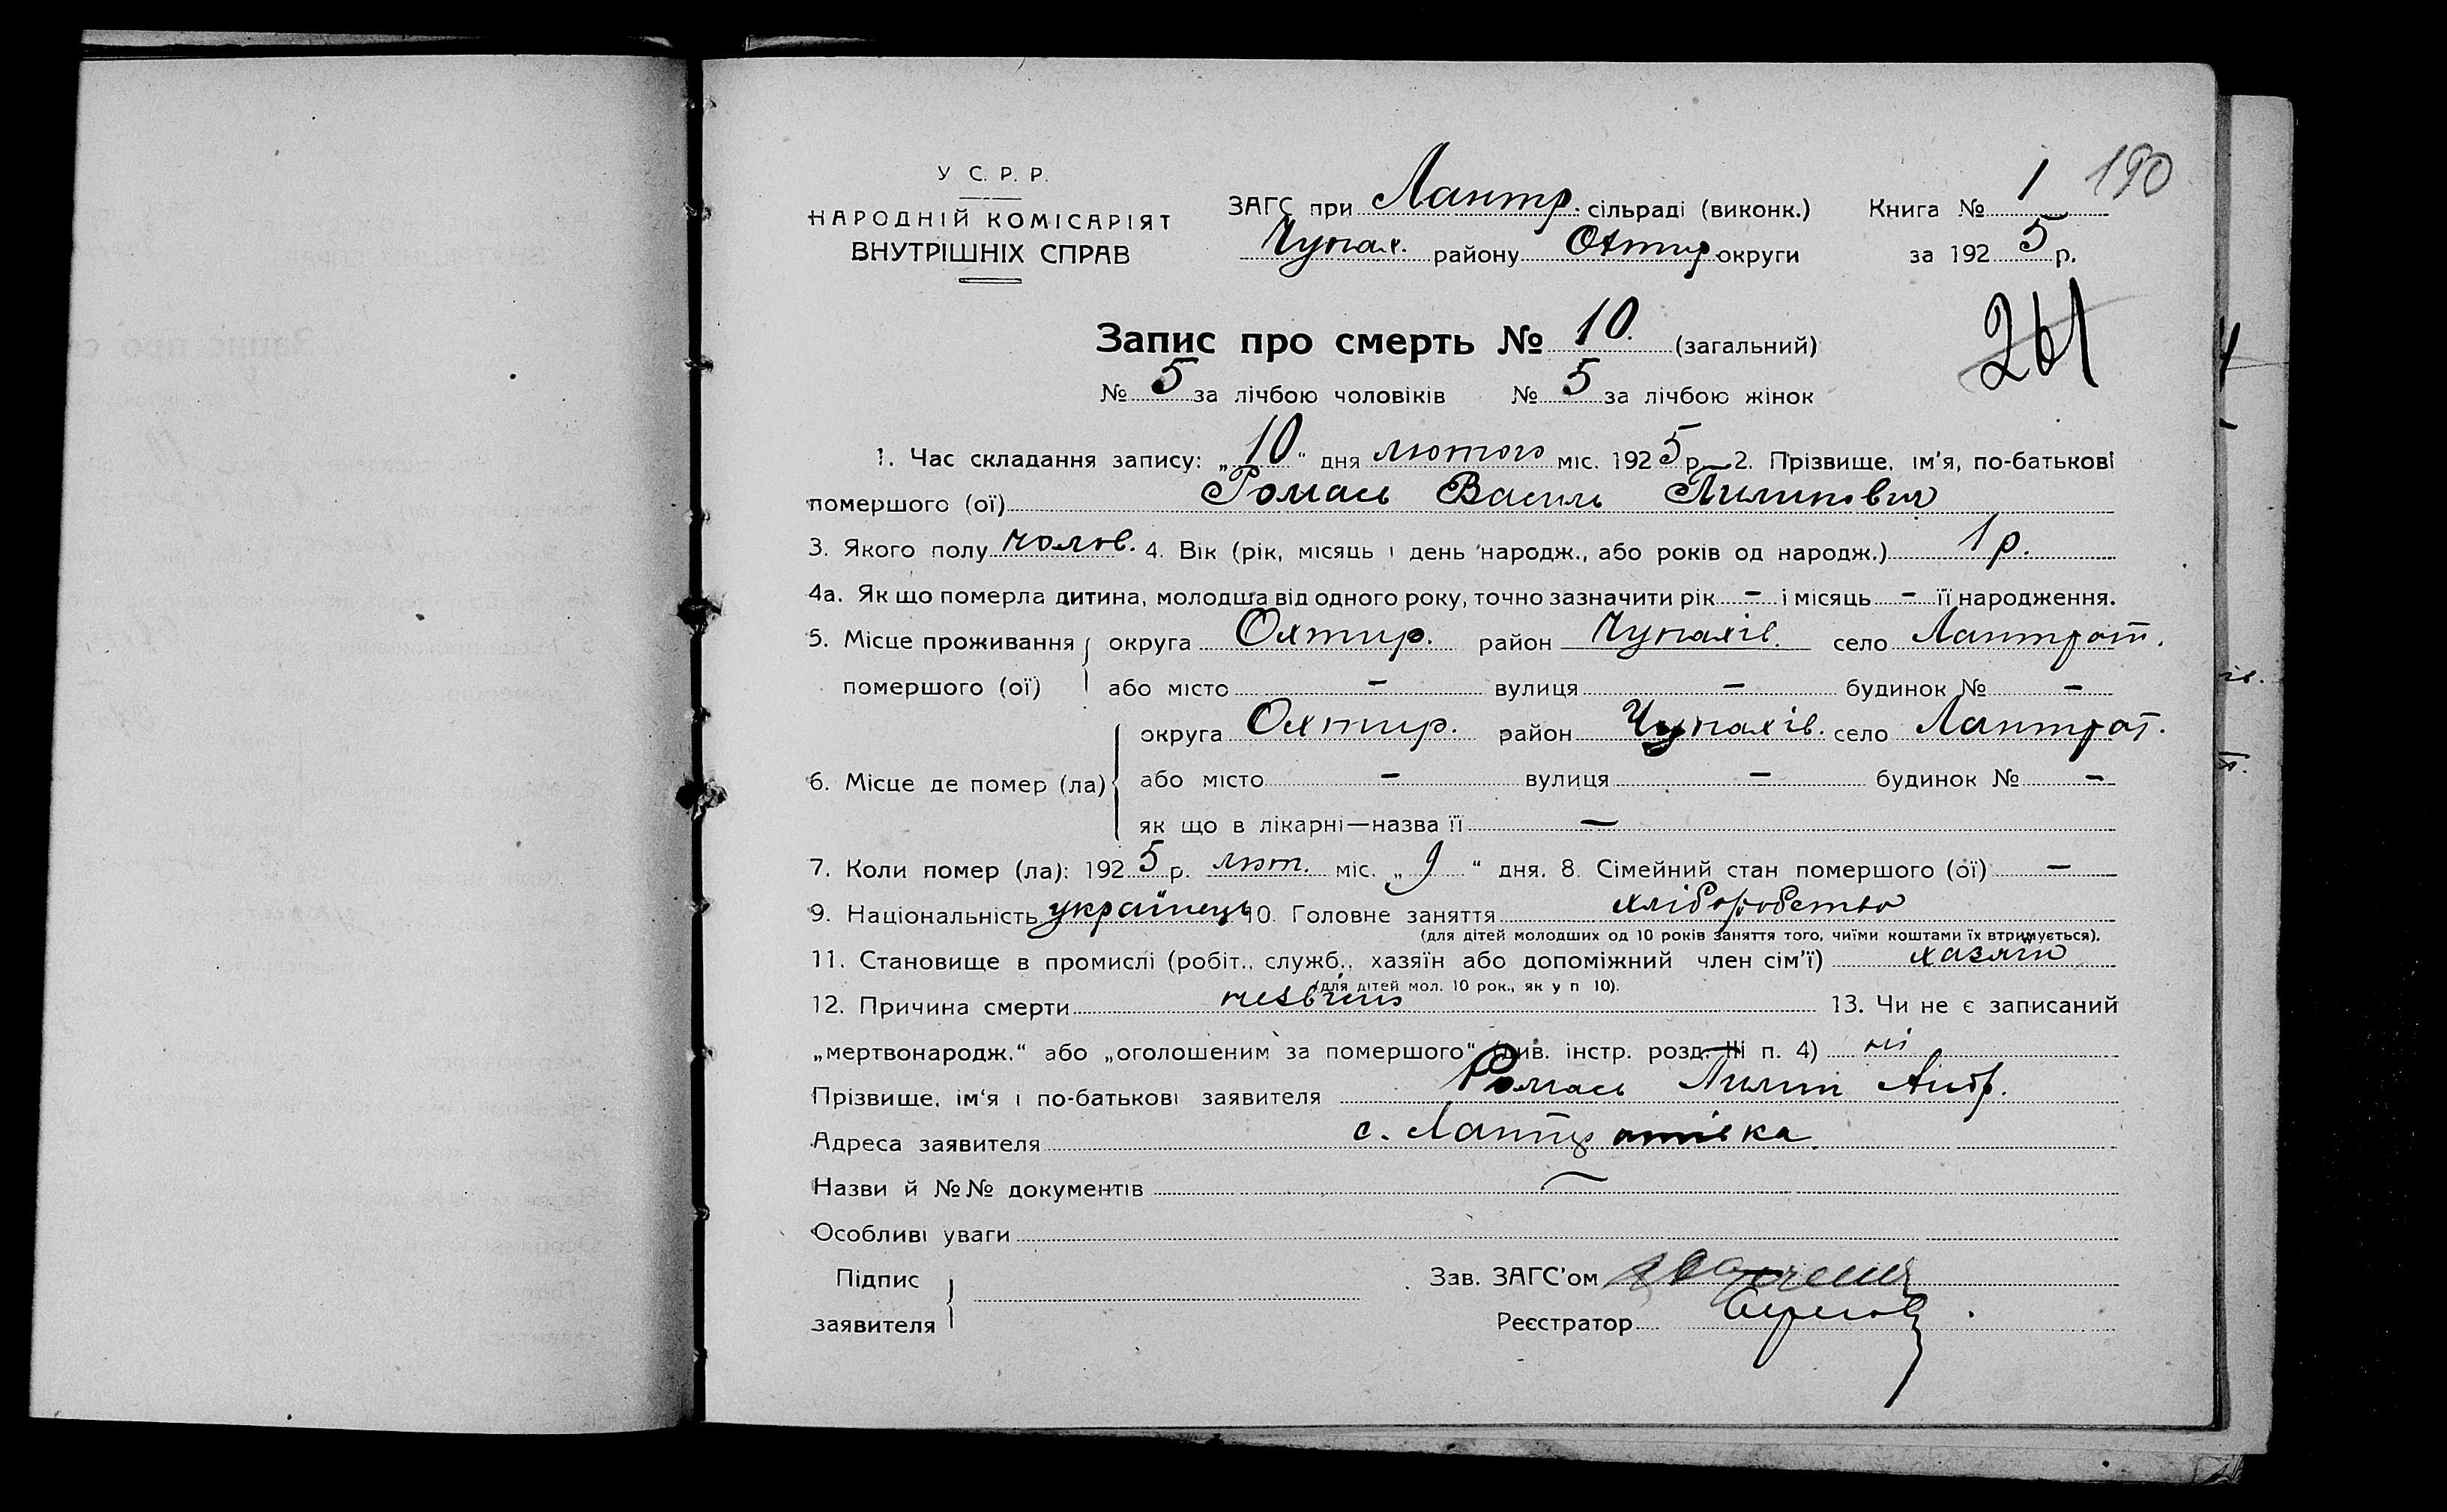 У С. Р. Р.
НАРОДНІЙ КОМІСАРІЯТ
ВНУТРІШНІХ СПРАВ
ЗАГС при Лантр. сільраді (виконк.) Книга № 1 190
Чупах. району Охтир округи за 192 5 р.
Запис про смерть № 10. (загальний)
261
№ 5 за лічбою чоловіків № 5 за лічбою жінок
1. Час складання запису: „10“ дня лютого міс. 1925 р. 2. Прізвище, ім'я, по-батькові
помершого (ої) Ромась Василь Пилипович
3. Якого полу чолов. 4. Вік (рік, місяць і день народж., або років од народж.) 1 р.
4а. Як що померла дитина, молодша від одного року, точно зазначити рік – і місяць – її народження.
5. Місце проживання округа Охтир. район Чупахів. село Лантрат.
помершого (ої) або місто – вулиця – будинок № –
округа Охтир. район Чупахів. село Лантрат.
6. Місце де помер (ла) або місто – вулиця – будинок № –
як що в лікарні—назва її —
7. Коли помер (ла): 1925 р. лют. міс. „9“ дня. 8. Сімейний стан помершого (ої) —
9. Національність українець 10. Головне заняття хліборобство
(для дітей молодших од 10 років заняття того, чиїми коштами їх втримується).
11. Становище в промислі (робіт., служб., хазяїн або допоміжний член сім'ї) хазяїн
(для дітей мол. 10 рок., як у п 10).
12. Причина смерти 13. Чи не є записаний
„мертвонародж.“ або „оголошеним за помершого“ (див. інстр. розд. III п. 4) ні
Прізвище, ім'я і по-батькові заявителя Ромась Пилип Андр.
Адреса заявителя с. Лантратівка
Назви й №№ документів —
Особливі уваги
Підпис
заявителя
Зав. ЗАГС'ом
Реєстратор